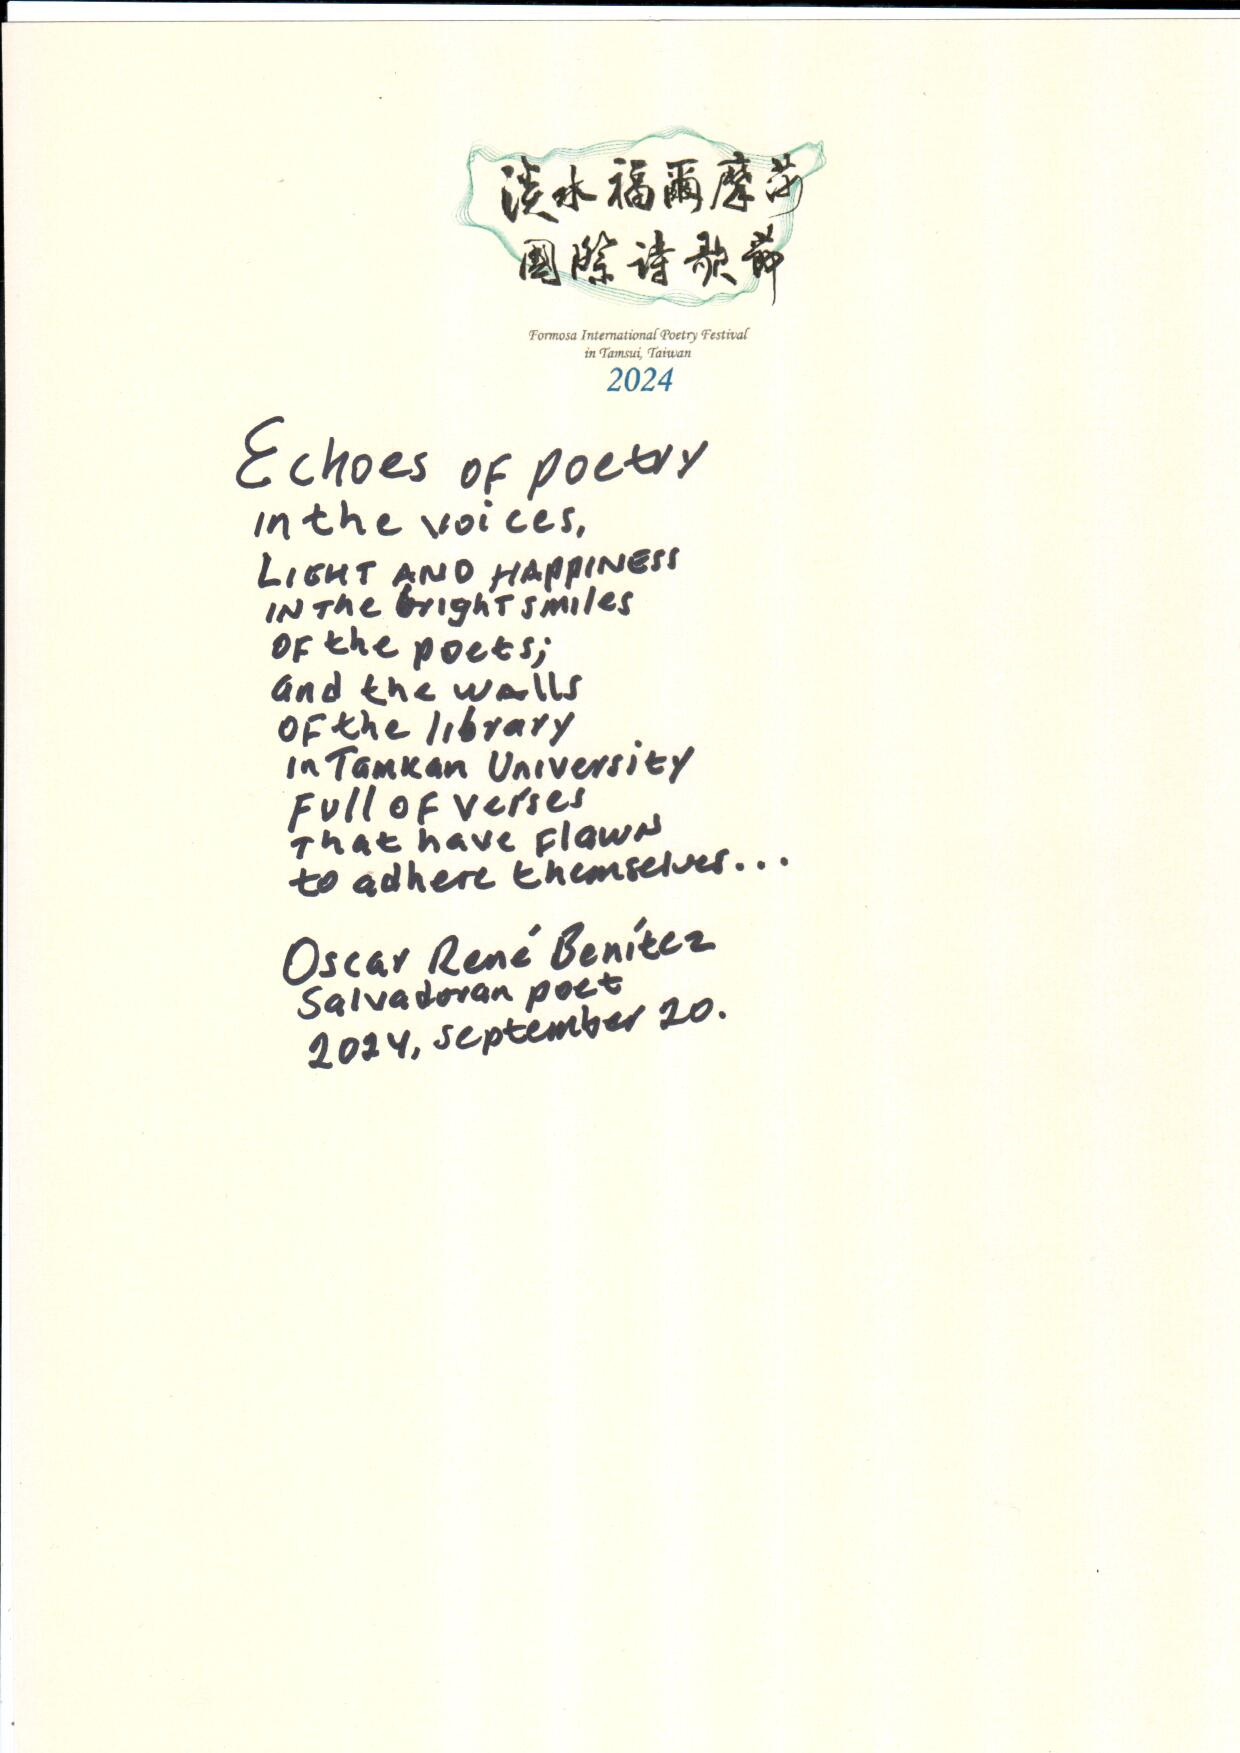 淡水福爾摩莎
國際詩歌節
Formosa International Poetry Festival
in Tamsui, Taiwan
2024
Echoes of poetry
in the voices,
LIGHT AND HAPPINESS
IN The brighT smiles
OF the poets;
and the walls
OF the library
in Tamkan University
Full OF verses
That have Flawn
to adhere themselves...
Oscar René Benítez
Salvadoran poet
2024, september 20.